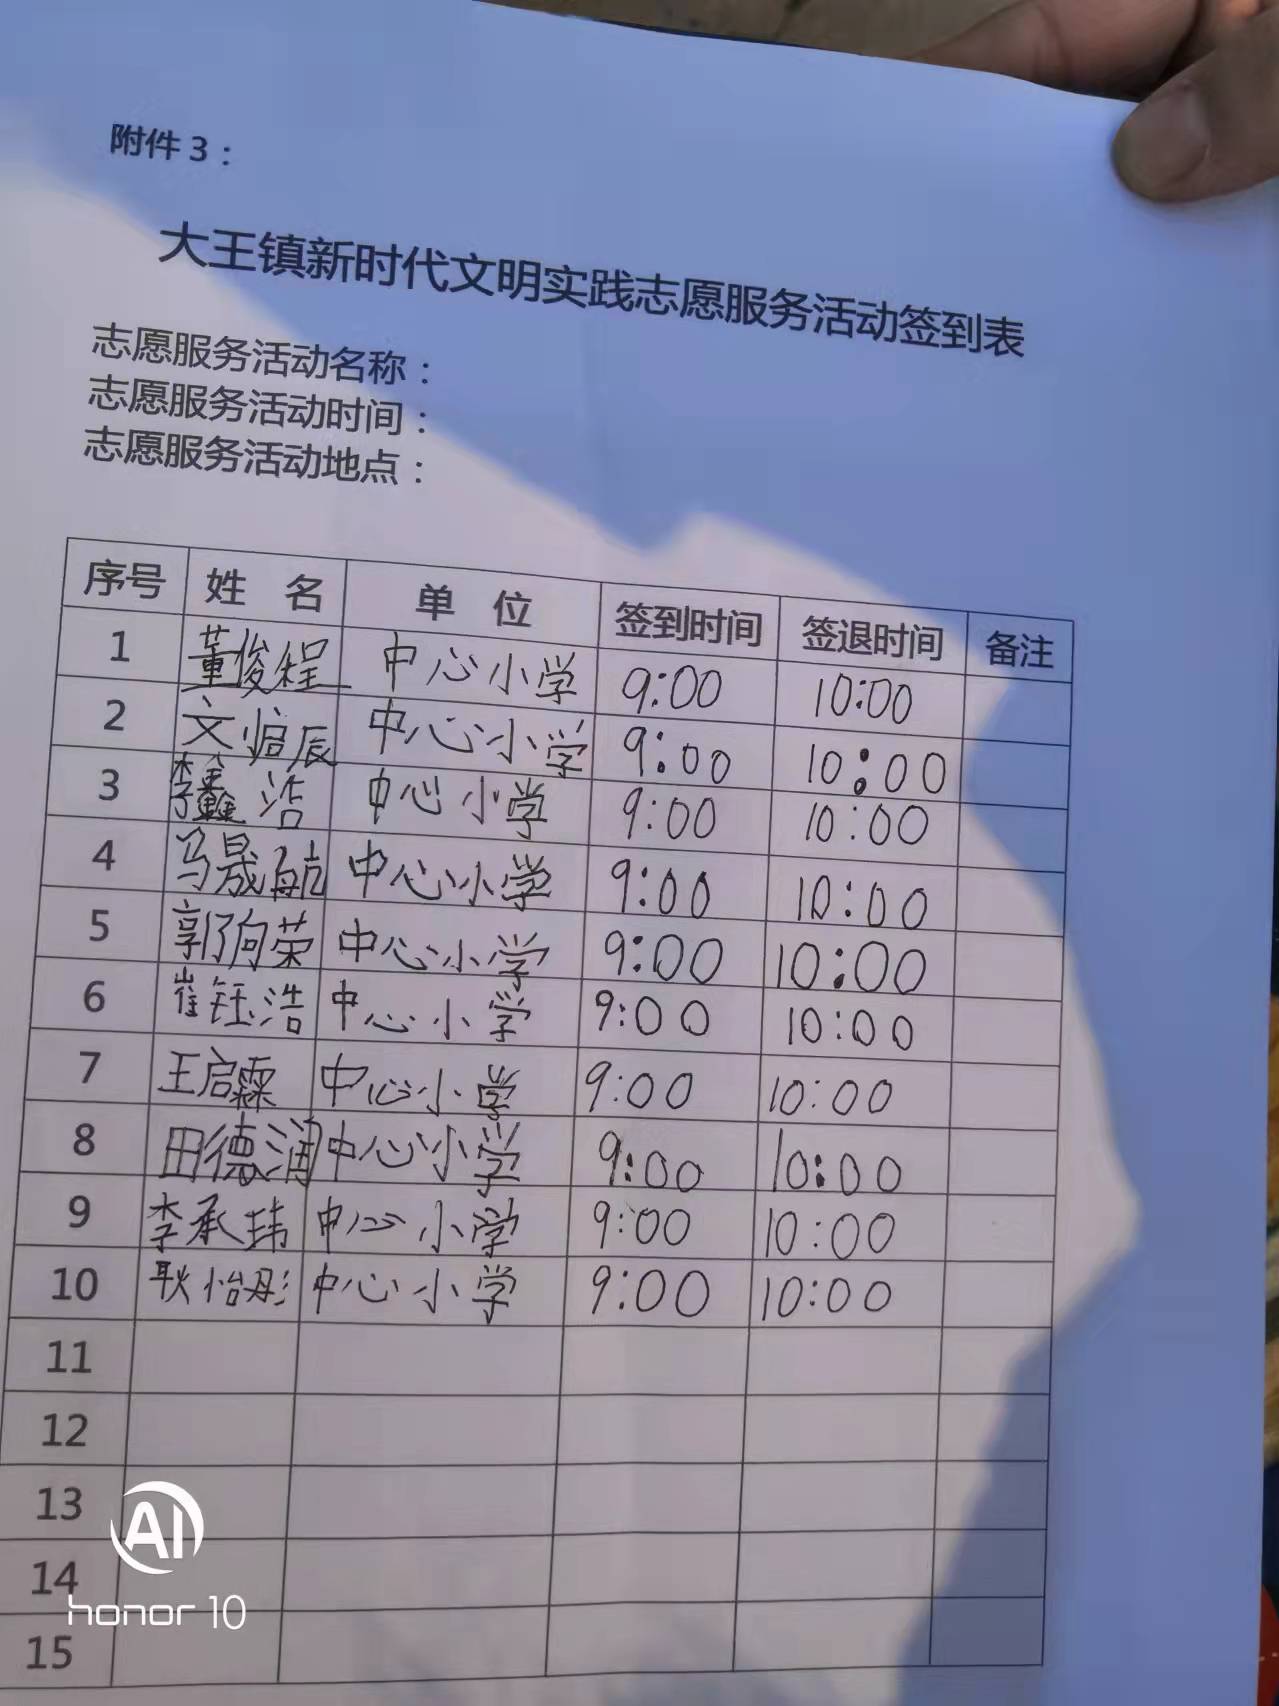 附件3：
大王镇新时代文明实践志愿服务活动签到表
志愿服务活动名称：
志愿服务活动时间：
志愿服务活动地点：
序号 姓 名 单 位 签到时间 签退时间 备注
1 董俊程 中心小学 9:00 10:00
2 文 辰 中心小学 9:00 10:00
3 李鑫浩 中心小学 9:00 10:00
4 马晟航 中心小学 9:00 10:00
5 郭向荣 中心小学 9:00 10:00
6 崔钰浩 中心小学 9:00 10:00
7 王启霖 中心小学 9:00 10:00
8 田德润 中心小学 9:00 10:00
9 李承玮 中心小学 9:00 10:00
10 耿怡彤 中心小学 9:00 10:00
11
12
13
14
15
AI
honor 10